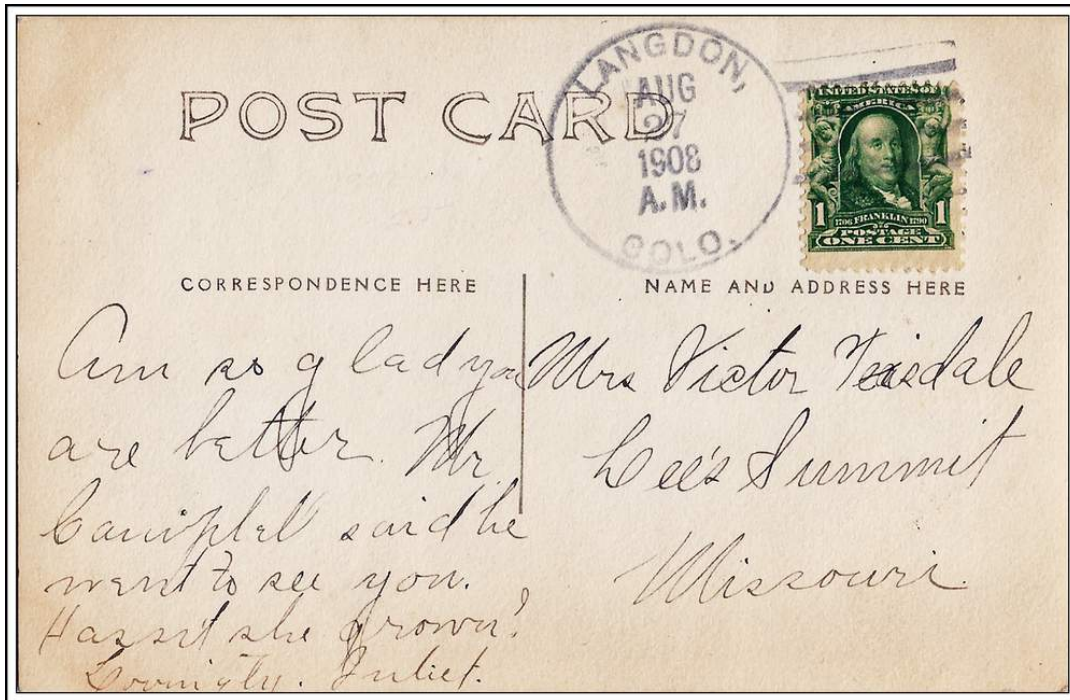 POST CARD
LANGDON,
AUG
27
1908
A.M.
COLO.
UNITED STATES OF
AMERICA
1 1
1706 FRANKLIN 1790
POSTAGE
ONE CENT
CORRESPONDENCE HERE
Am so glad you
are better. Mr
Campbel said he
went to see you.
Hassit she grown?
Lovingly. Juliet.
NAME AND ADDRESS HERE
Mrs Victor Teasdale
Lee's Summit
Missouri